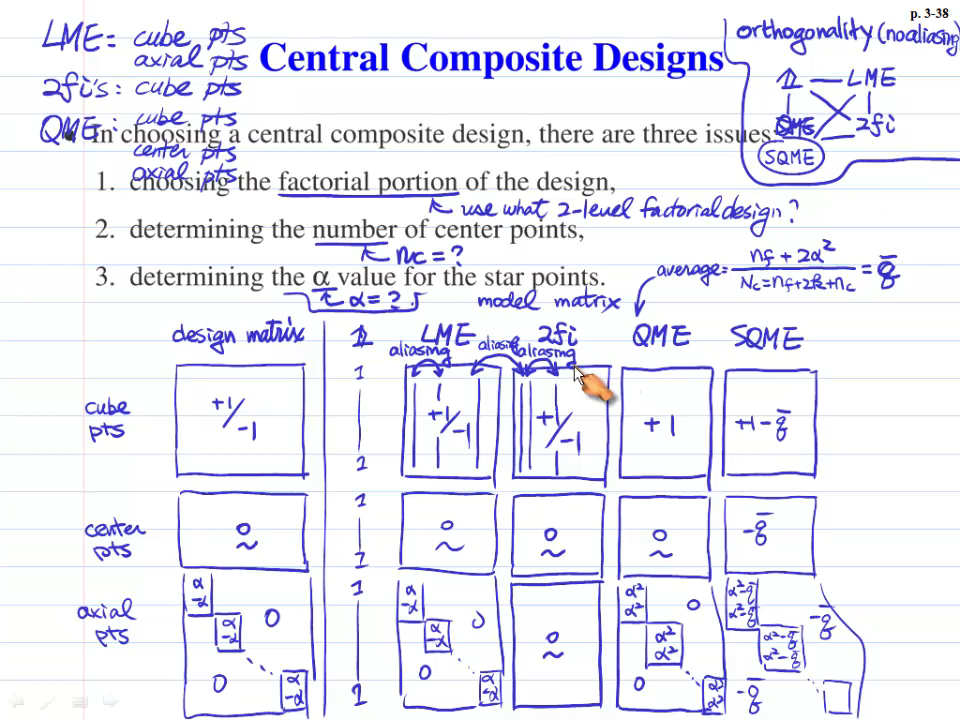 p. 3-38
LME = cube pts
axial pts
2fi's : cube pts
QME : cube pts
center pts
axial pts
Central Composite Designs
orthogonality (no aliasing)
1 — LME
QME 2fi
SQME
• In choosing a central composite design, there are three issues
1. choosing the factorial portion of the design,
use what 2-level factorial design?
2. determining the number of center points,
nc = ?
3. determining the α value for the star points.
α = ?
average = nf + 2α² / Nc = nf + 2k + nc = q̄
model matrix
design matrix 1 LME 2fi QME SQME
aliasing aliasing aliasing
cube pts +1/-1 1 1 +1/-1 +1/-1 +1 +1-q̄
center pts 0 1 1 0 0 0 -q̄
axial pts α -α α -α α -α 0 0 1 1 α -α α -α α -α 0 0 0 α² α² α² α² α² α² 0 0 α²-q̄ α²-q̄ α²-q̄ α²-q̄ -q̄ -q̄